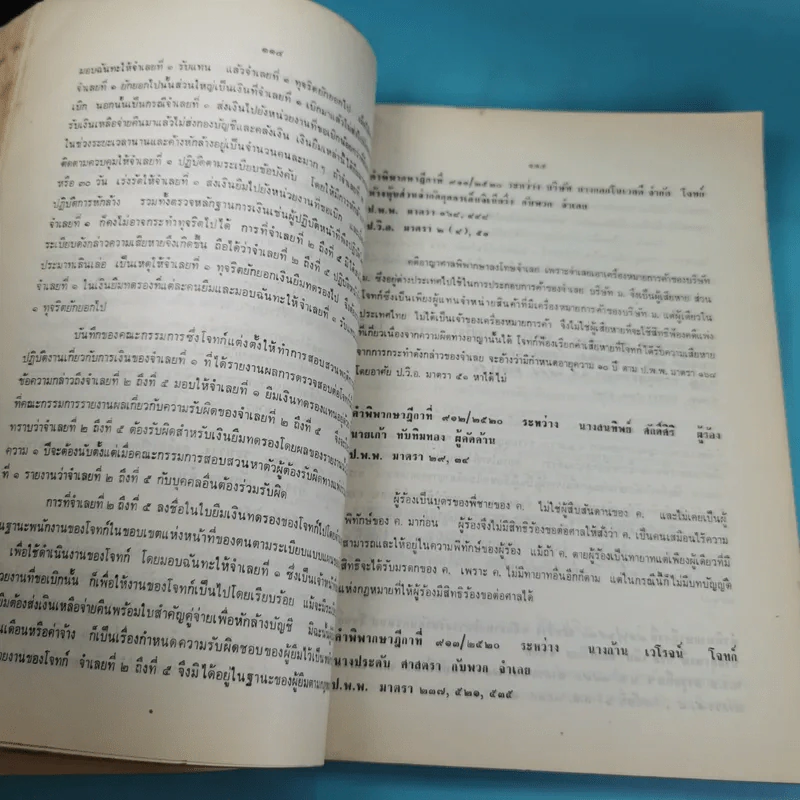 ๑๑๘
มอบฉันทะให้จำเลยที่ ๑ รับแทน แล้วจำเลยที่ ๑ ทุจริตยักยอกไป
จำเลยที่ ๑ ยักยอกไปนั้นส่วนใหญ่เป็นเงินที่จำเลยที่ ๑ เบิกมาแล้วไม่ส่ง
เบิก นอกนั้นเป็นกรณีจำเลยที่ ๑ ส่งเงินไปยังหน่วยงานที่ขอเบิก
รับเงินเหลือจ่ายคืนมาแล้วไม่ส่งกองบัญชีและคลังเงิน เงินยืมเหล่านี้
ในช่วงระยะเวลานานและค้างหักล้างอยู่เป็นจำนวนคนละมาก ๆ ถ้าจำเลยที่
ติดตามควบคุมให้จำเลยที่ ๑ ปฏิบัติตามระเบียบข้อบังคับ โดยให้มีการหัก
หรือ ๓๐ วัน เร่งรัดให้จำเลยที่ ๑ ส่งเงินยืมไปยังหน่วยงานที่ขอเบิก
ปฏิบัติการหักล้าง รวมทั้งตรวจหลักฐานการเงินเช่นผู้ปฏิบัติหน้าที่
จำเลยที่ ๑ ก็คงไม่อาจกระทำทุจริตไปได้ การที่จำเลยที่ ๒ ถึงที่ ๕
ระเบียบดังกล่าวความเสียหายจึงเกิดขึ้น ถือได้ว่าจำเลยที่ ๒ ถึงที่ ๕ ปฏิบัติ
ประมาทเลินเล่อ เป็นเหตุให้จำเลยที่ ๑ ทุจริตยักยอกเงินยืมทดรองไป
จำเลยที่ ๑ ในเงินยืมทดรองที่แต่ละคนยืมและมอบฉันทะให้จำเลยที่ ๑ รับแทน
๑ ทุจริตยักยอกไป
บันทึกของคณะกรรมการซึ่งโจทก์แต่งตั้งให้ทำการสอบสวน
ปฏิบัติงานเกี่ยวกับการเงินของจำเลยที่ ๑ ที่ได้รายงานผลการตรวจสอบต่อโจทก์
ข้อความกล่าวถึงจำเลยที่ ๒ ถึงที่ ๕ มอบให้จำเลยที่ ๑ ยืมเงินทดรองแทน
ที่คณะกรรมการรายงานผลเกี่ยวกับความรับผิดของจำเลยที่ ๒ ถึงที่ ๕
ทราบว่าจำเลยที่ ๒ ถึงที่ ๕ ต้องรับผิดสำหรับเงินยืมทดรองโดยผลของรายงาน
ความ ๑ ปีจะต้องนับตั้งแต่เมื่อคณะกรรมการสอบสวนหาตัวผู้ต้องรับผิดทาง
ที่ ๑ รายงานว่าจำเลยที่ ๒ ถึงที่ ๕ กับบุคคลอื่นต้องร่วมรับผิด
การที่จำเลยที่ ๒ ถึงที่ ๕ ลงชื่อในใบยืมเงินทดรองของโจทก์ไป
ในฐานะพนักงานของโจทก์ในขอบเขตแห่งหน้าที่ของตนตามระเบียบแบบแผน
เพื่อใช้ดำเนินงานของโจทก์ โดยมอบฉันทะให้จำเลยที่ ๑ ซึ่งเป็นเจ้าหน้าที่
ก็เพื่อให้งานของโจทก์เป็นไปโดยเรียบร้อย แม้จะมี
ต้องส่งเงินเหลือจ่ายคืนพร้อมใบสำคัญคู่จ่ายเพื่อหักล้างบัญชี
เดือนหรือค่าจ้าง ก็เป็นเรื่องกำหนดความรับผิดชอบของผู้ยืมไว้เป็น
งานของโจทก์ จำเลยที่ ๒ ถึงที่ ๕ จึงมิได้อยู่ในฐานะของผู้ยืมตาม
๑๑๙
คำพิพากษาฎีกาที่ ๙๑๑/๒๕๒๐ ระหว่าง บริษัท จำกัด โจทก์
กับพวก จำเลย
ป.พ.พ. มาตรา ๑๖๘, ๔๔๘
ป.วิ.อ. มาตรา ๒ (๔), ๕๑
คดีอาญาศาลพิพากษาลงโทษจำเลย เพราะจำเลยเอาเครื่องหมายการค้าของบริษัท
ม. ซึ่งอยู่ต่างประเทศไปใช้ในการประกอบการค้าของจำเลย บริษัท ม. จึงเป็นผู้เสียหาย ส่วน
โจทก์ซึ่งเป็นเพียงผู้แทนจำหน่ายสินค้าที่มีเครื่องหมายการค้าของบริษัท ม. แต่ผู้เดียวใน
ประเทศไทย ไม่ได้เป็นเจ้าของเครื่องหมายการค้า จึงไม่ใช่ผู้เสียหายที่จะใช้สิทธิฟ้องคดีแพ่ง
ที่เกี่ยวเนื่องจากความผิดทางอาญานั้นได้ โจทก์ฟ้องเรียกค่าเสียหายที่โจทก์ได้รับความเสียหาย
จากการกระทำดังกล่าวของจำเลย จะอ้างว่ามีกำหนดอายุความ ๑๐ ปี ตาม ป.พ.พ. มาตรา ๑๖๘
โดยอาศัย ป.วิ.อ. มาตรา ๕๑ หาได้ไม่
คำพิพากษาฎีกาที่ ๙๑๒/๒๕๒๐ ระหว่าง นางสนทิพย์ ศักดิ์สิริ ผู้ร้อง
นายเก้า ทับทิมทอง ผู้คัดค้าน
ป.พ.พ. มาตรา ๒๙, ๓๔
ผู้ร้องเป็นบุตรของพี่ชายของ ค. ไม่ใช่ผู้สืบสันดานของ ค. และไม่เคยเป็นผู้
พิทักษ์ของ ค. มาก่อน ผู้ร้องจึงไม่มีสิทธิร้องขอต่อศาลให้สั่งว่า ค. เป็นคนเสมือนไร้ความ
สามารถและให้อยู่ในความพิทักษ์ของผู้ร้อง แม้ถ้า ค. ตายผู้ร้องเป็นทายาทแต่เพียงผู้เดียวที่มี
สิทธิจะได้รับมรดกของ ค. เพราะ ค. ไม่มีทายาทอื่นอีกก็ตาม แต่ในกรณีนี้ก็ไม่มีบทบัญญัติ
แห่งกฎหมายที่ให้ผู้ร้องมีสิทธิร้องขอต่อศาลได้
คำพิพากษาฎีกาที่ ๙๑๓/๒๕๒๐ ระหว่าง นางก้าน เวโรจน์ โจทก์
นางประดับ ศาสตรา กับพวก จำเลย
ป.พ.พ. มาตรา ๒๓๗, ๕๒๑, ๕๓๕